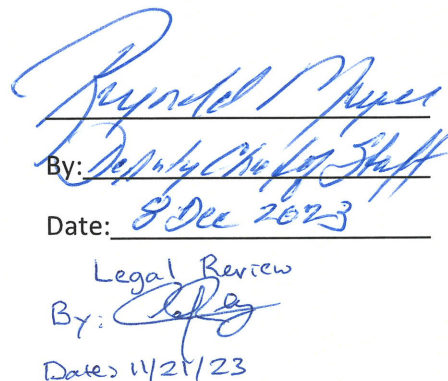 By: Deputy Chief of Staff
Date: 8 Dec 2023
Legal Review
By:
Date: 11/21/23